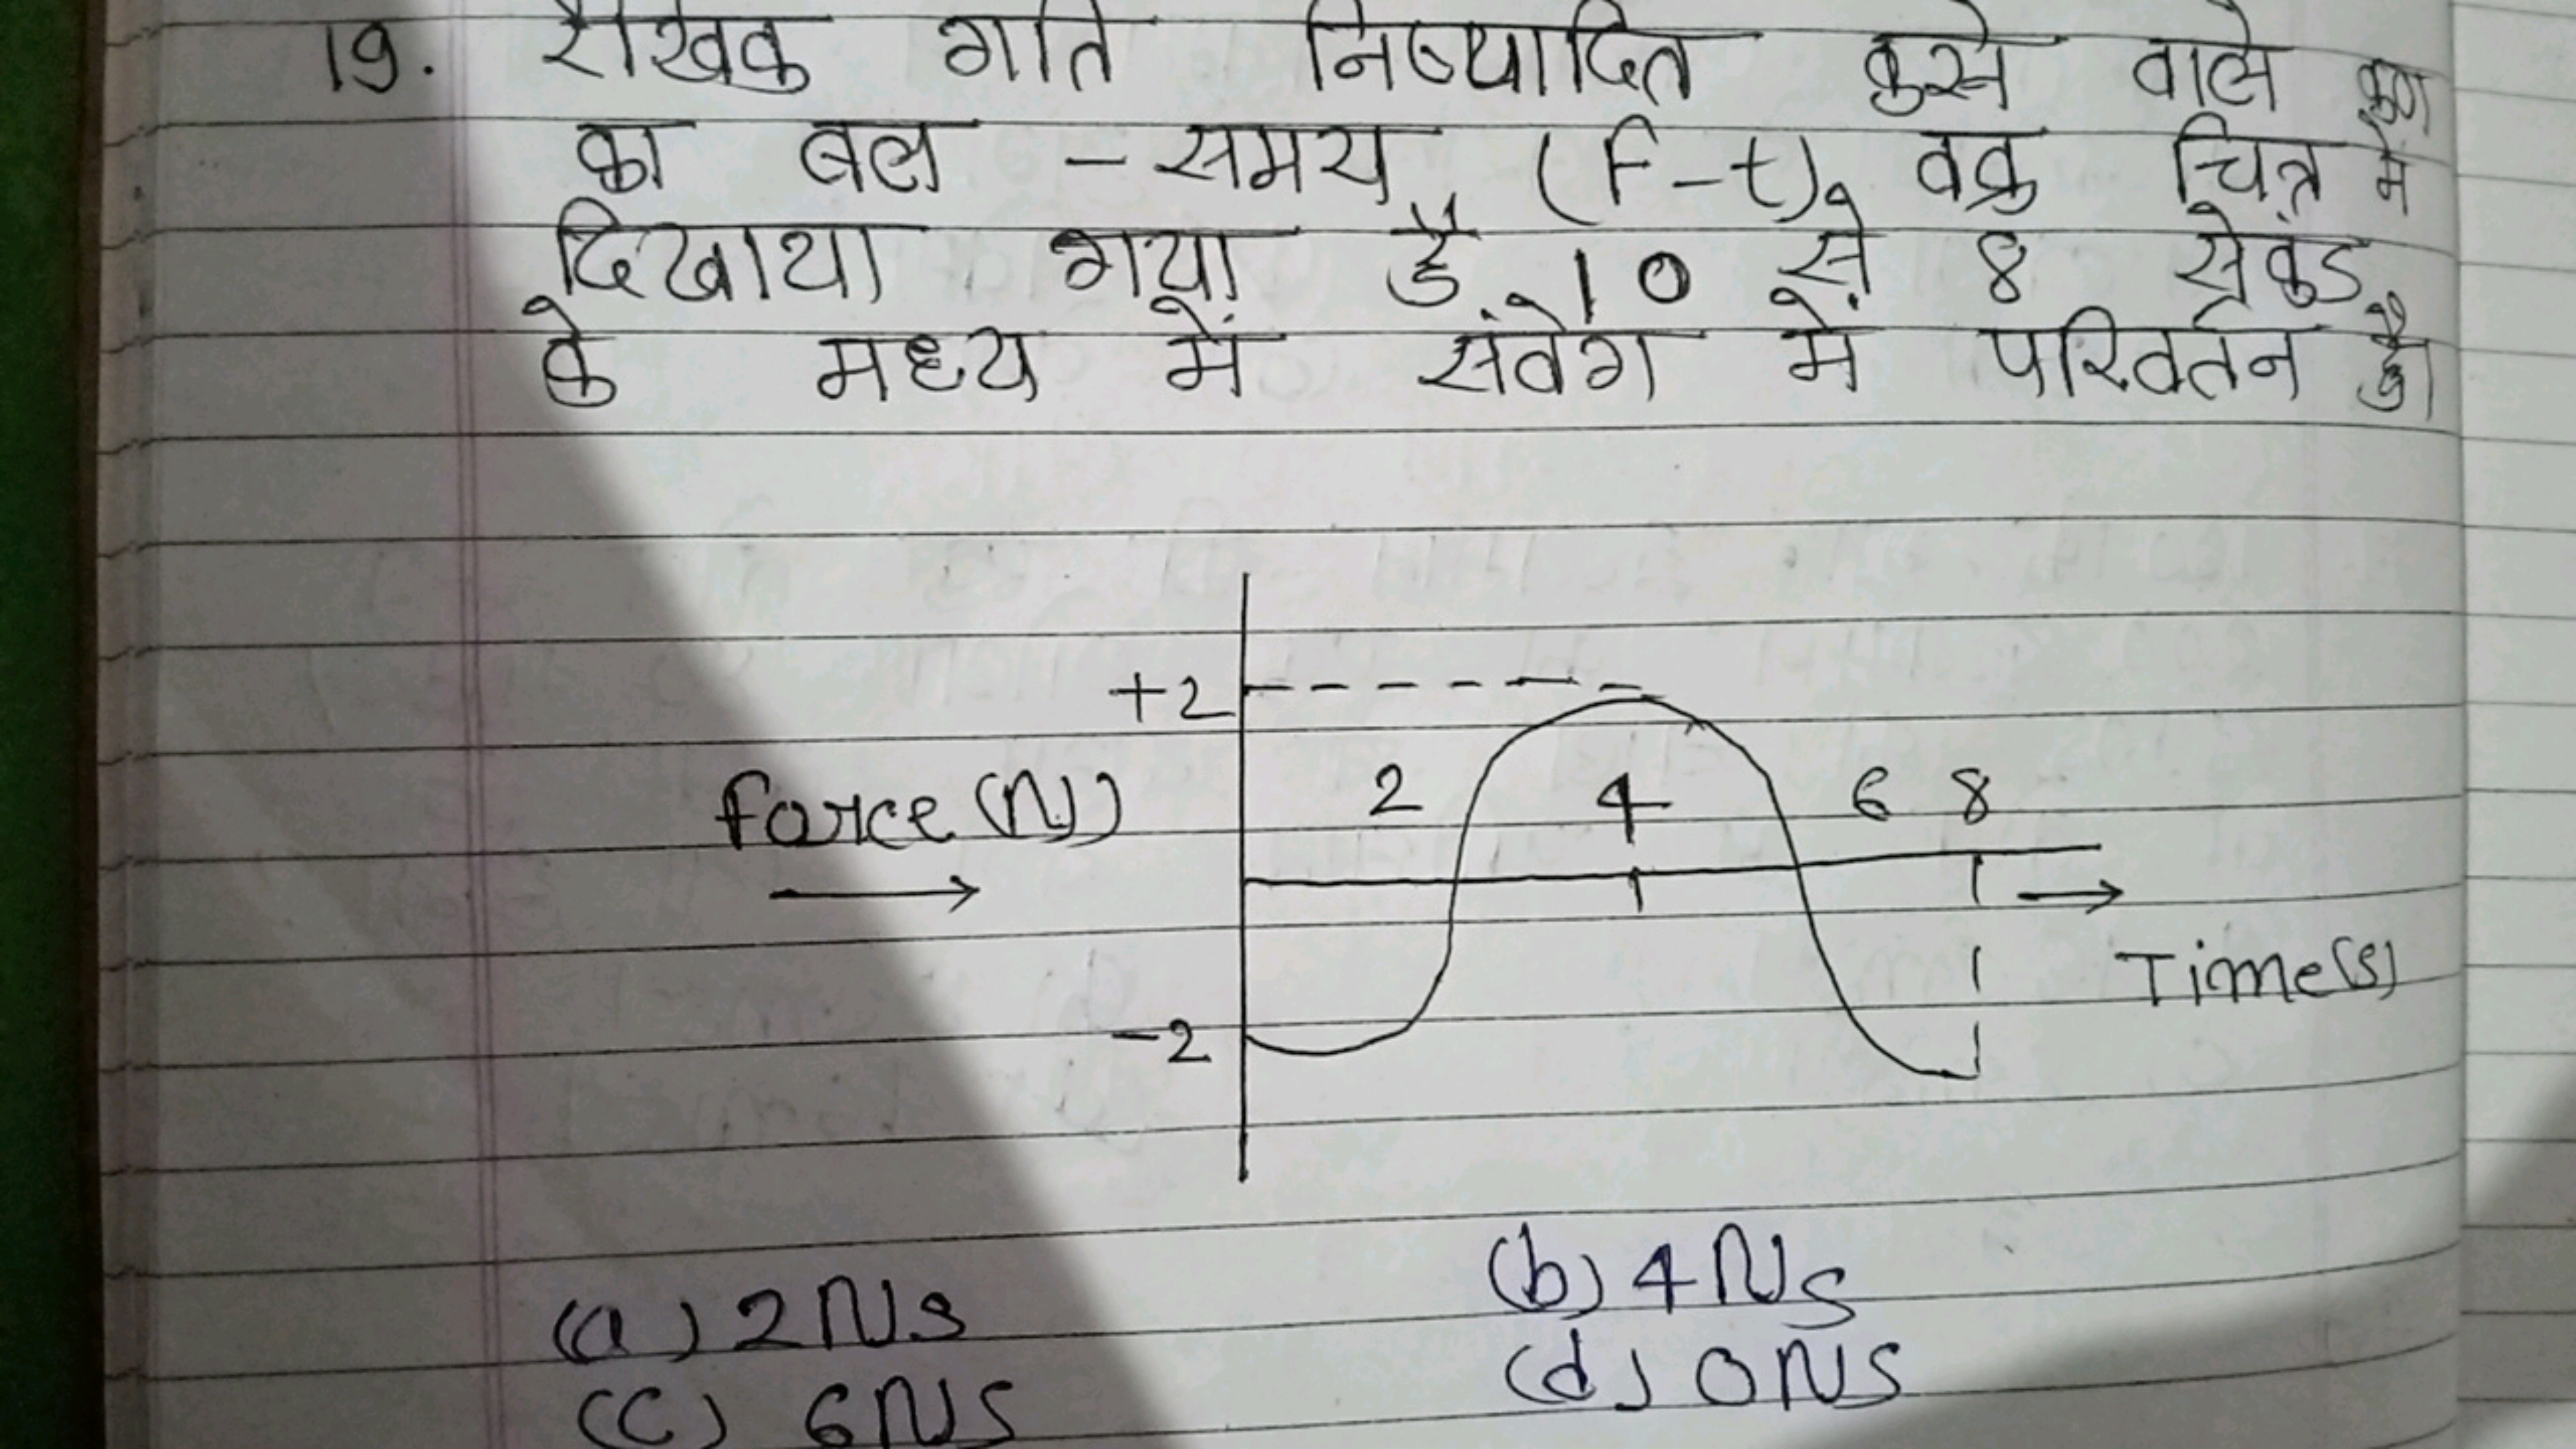 19. रैखिक गति निष्पादित करने वाले कण
का बल - समय (F-t) वक्र चित्र में
दिखाया गया है । 0 से 8 सेकंड
के मध्य में संवेग में परिवर्तन है।
+2
Force (N)
2 4 6 8
Time(s)
-2
(a) 2 NS (b) 4 NS
(c) 6 NS (d) 0 NS